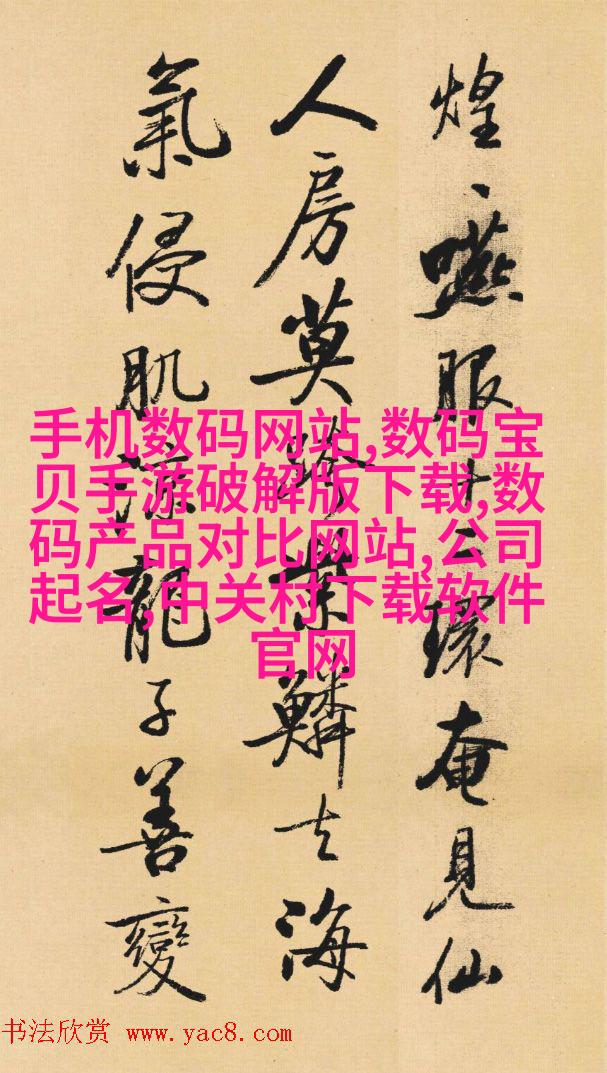 煌、嚥服十二環奄見仙
人房莫跨紫鱗去海
氣侵肌涼龍子善變
手机数码网站,数码宝
贝手游破解版下载,数
码产品对比网站,公司
起名,中关村下载软件
官网
书法欣赏 www.yac8.com